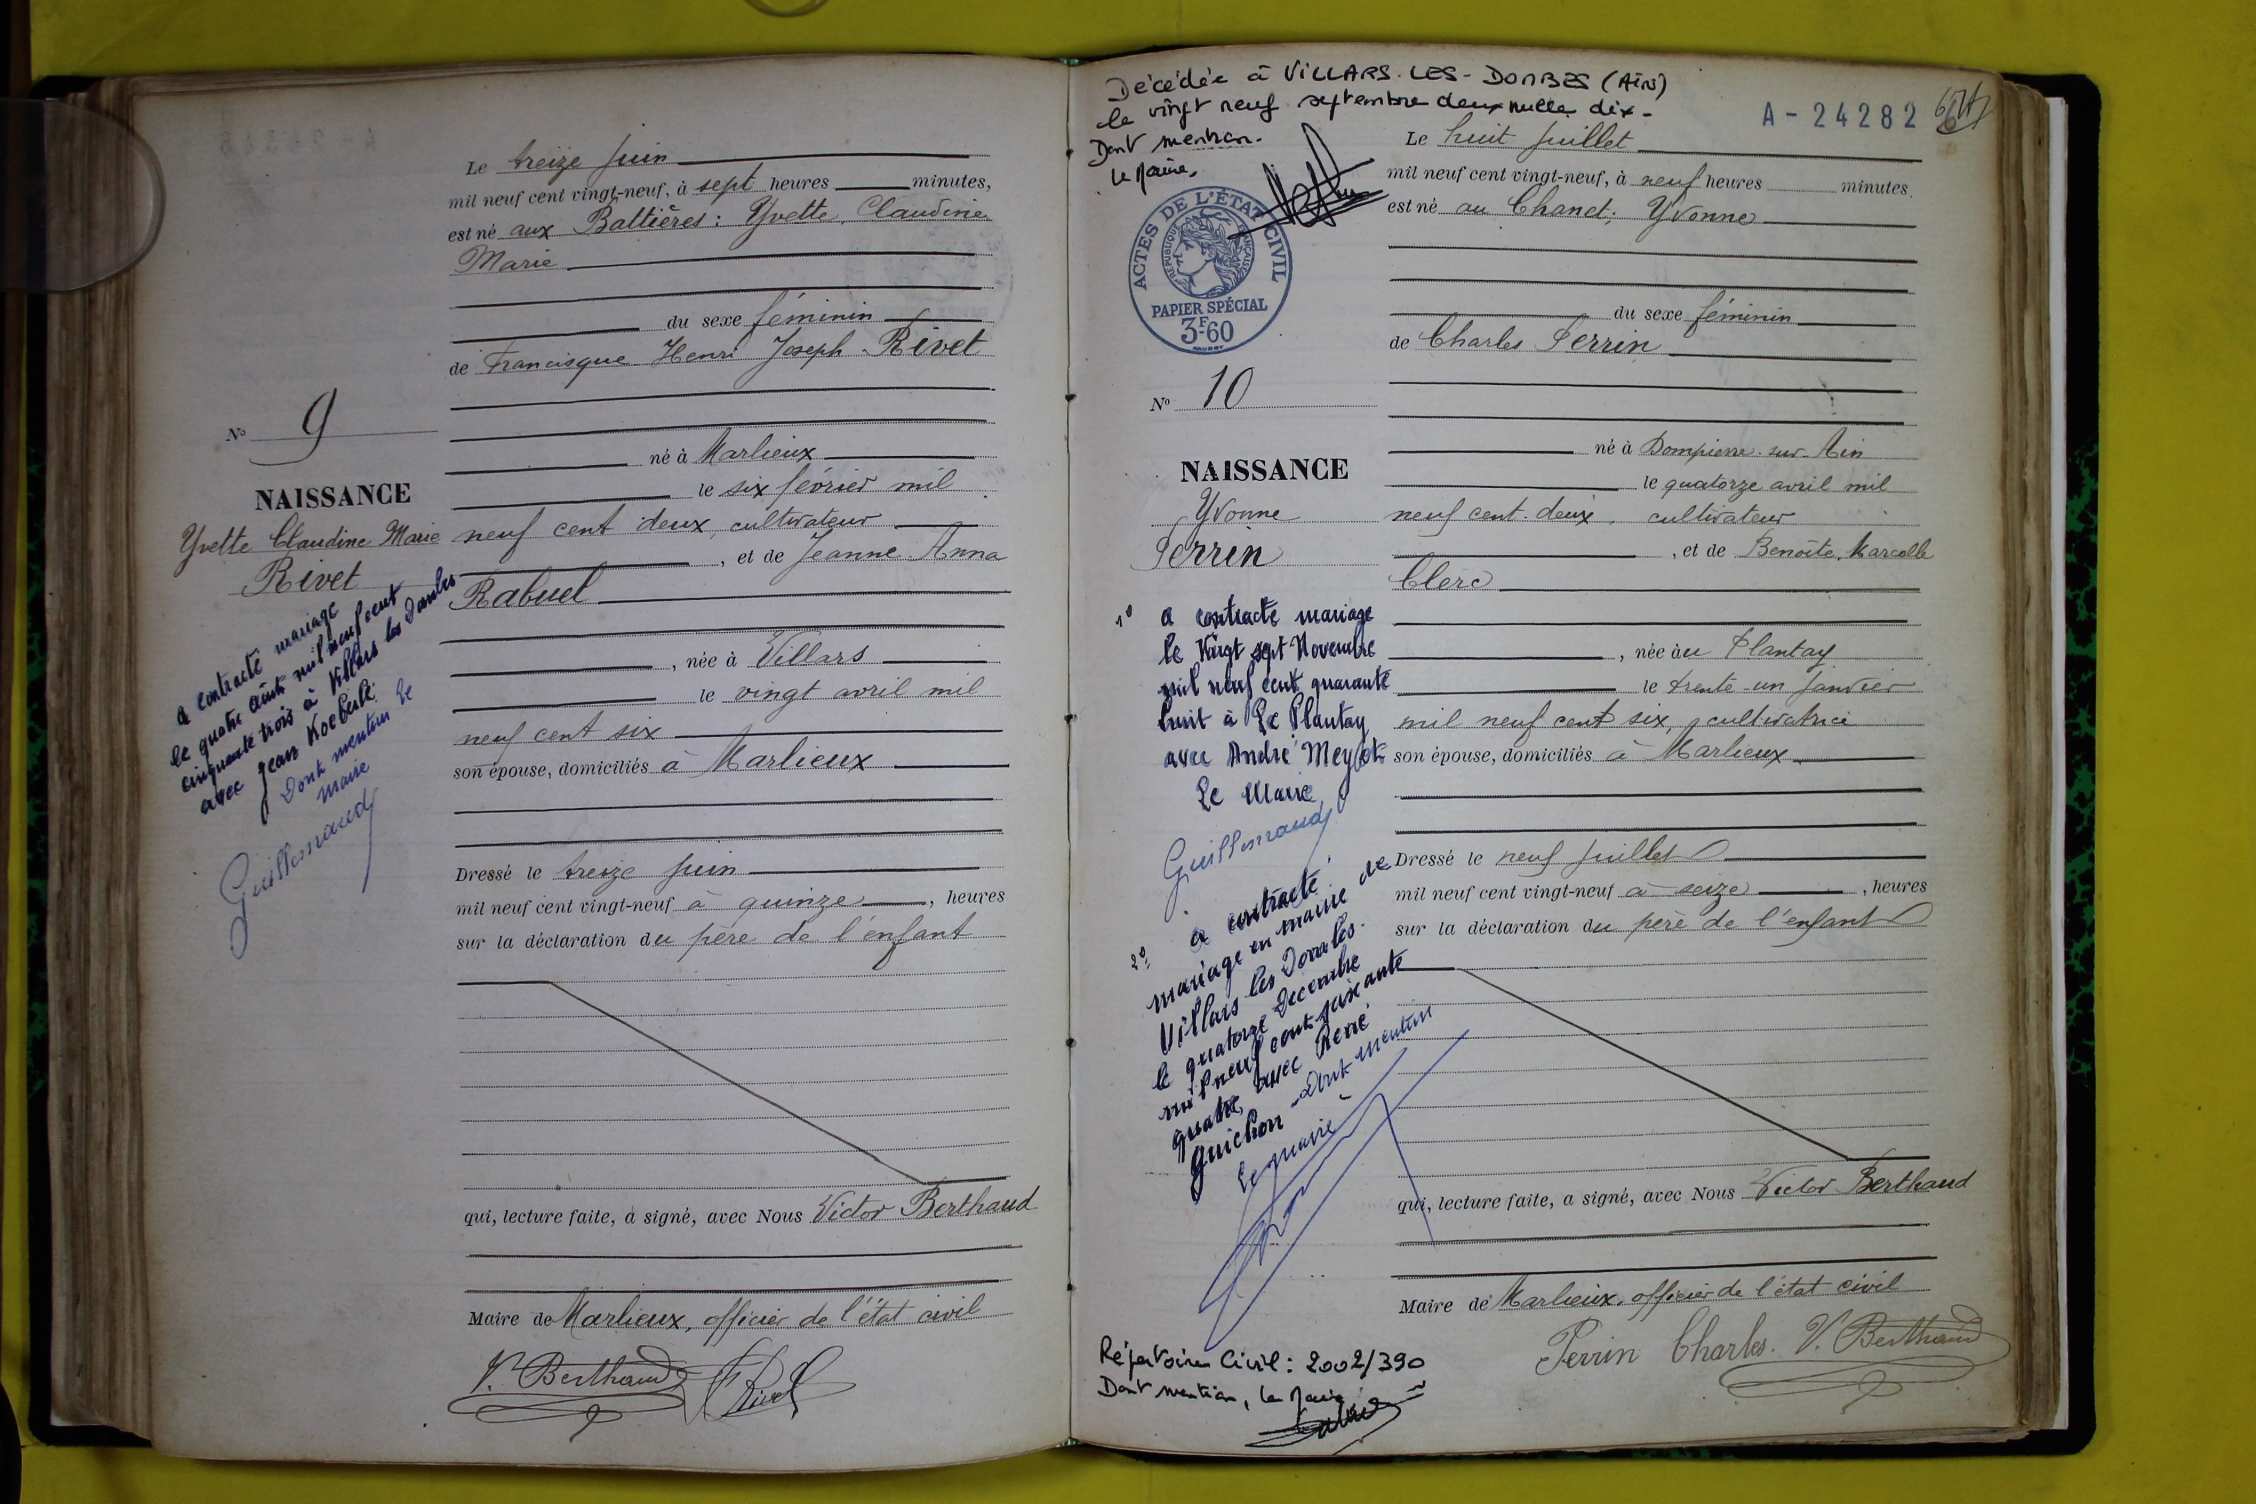 Le treize juin
mil neuf cent vingt-neuf, à sept heures minutes,
est né aux Battières : Yvette, Claudine
Marie
du sexe féminin
de Francisque Henri Joseph Rivet
né à Marlieux
le six février mil
neuf cent deux, cultivateur
, et de Jeanne Anna
Rabuel
, née à Villars
le vingt avril mil
neuf cent six
son épouse, domiciliés à Marlieux
Dressé le treize juin
mil neuf cent vingt-neuf à quinze , heures
sur la déclaration du père de l'enfant
qui, lecture faite, a signé, avec Nous Victor Berthaud
Maire de Marlieux, officier de l'état civil
V. Berthaud Rivet
No 9
NAISSANCE
Yvette Claudine Marie
Rivet
a contracté mariage
le quatre août mil neuf cent
cinquante trois à Villars les Dombes
avec Jean
Dont mention le
maire
Guillemaud
Décédée à VILLARS-LES-DOMBES (AIN)
le vingt neuf septembre deux mille dix-
Dont mention.
Le Maire,
A-24282
ACTES DE L'ÉTAT CIVIL
RÉPUBLIQUE FRANÇAISE
PAPIER SPÉCIAL
3F60
Le huit juillet
mil neuf cent vingt-neuf, à neuf heures minutes
est né au Chanel; Yvonne
du sexe féminin
de Charles Perrin
né à Dompierre-sur-Ain
le quatorze avril mil
neuf cent deux, cultivateur
, et de Benoîte, Marcelle
Clerc
, née au Plantay
le trente-un janvier
mil neuf cent six, cultivatrice
son épouse, domiciliés à Marlieux
Dressé le neuf juillet
mil neuf cent vingt-neuf à seize , heures
sur la déclaration du père de l'enfant
qui, lecture faite, a signé, avec Nous Victor Berthaud
Maire de Marlieux, officier de l'état civil
Perrin Charles. V. Berthaud
No 10
NAISSANCE
Yvonne
Perrin
1° a contracté mariage
le Vingt sept Novembre
mil neuf cent quarante
huit à Le Plantay
avec André
Le Maire
Guillemaud
2°: a contracté
mariage en mairie de
Villars les Dombes
le quatorze Decembre
mil neuf cent soixante
quatre, avec René
Guichon - Dont mention
Le maire -
Répertoire Civil : 2002/390
Dont mention, le Maire